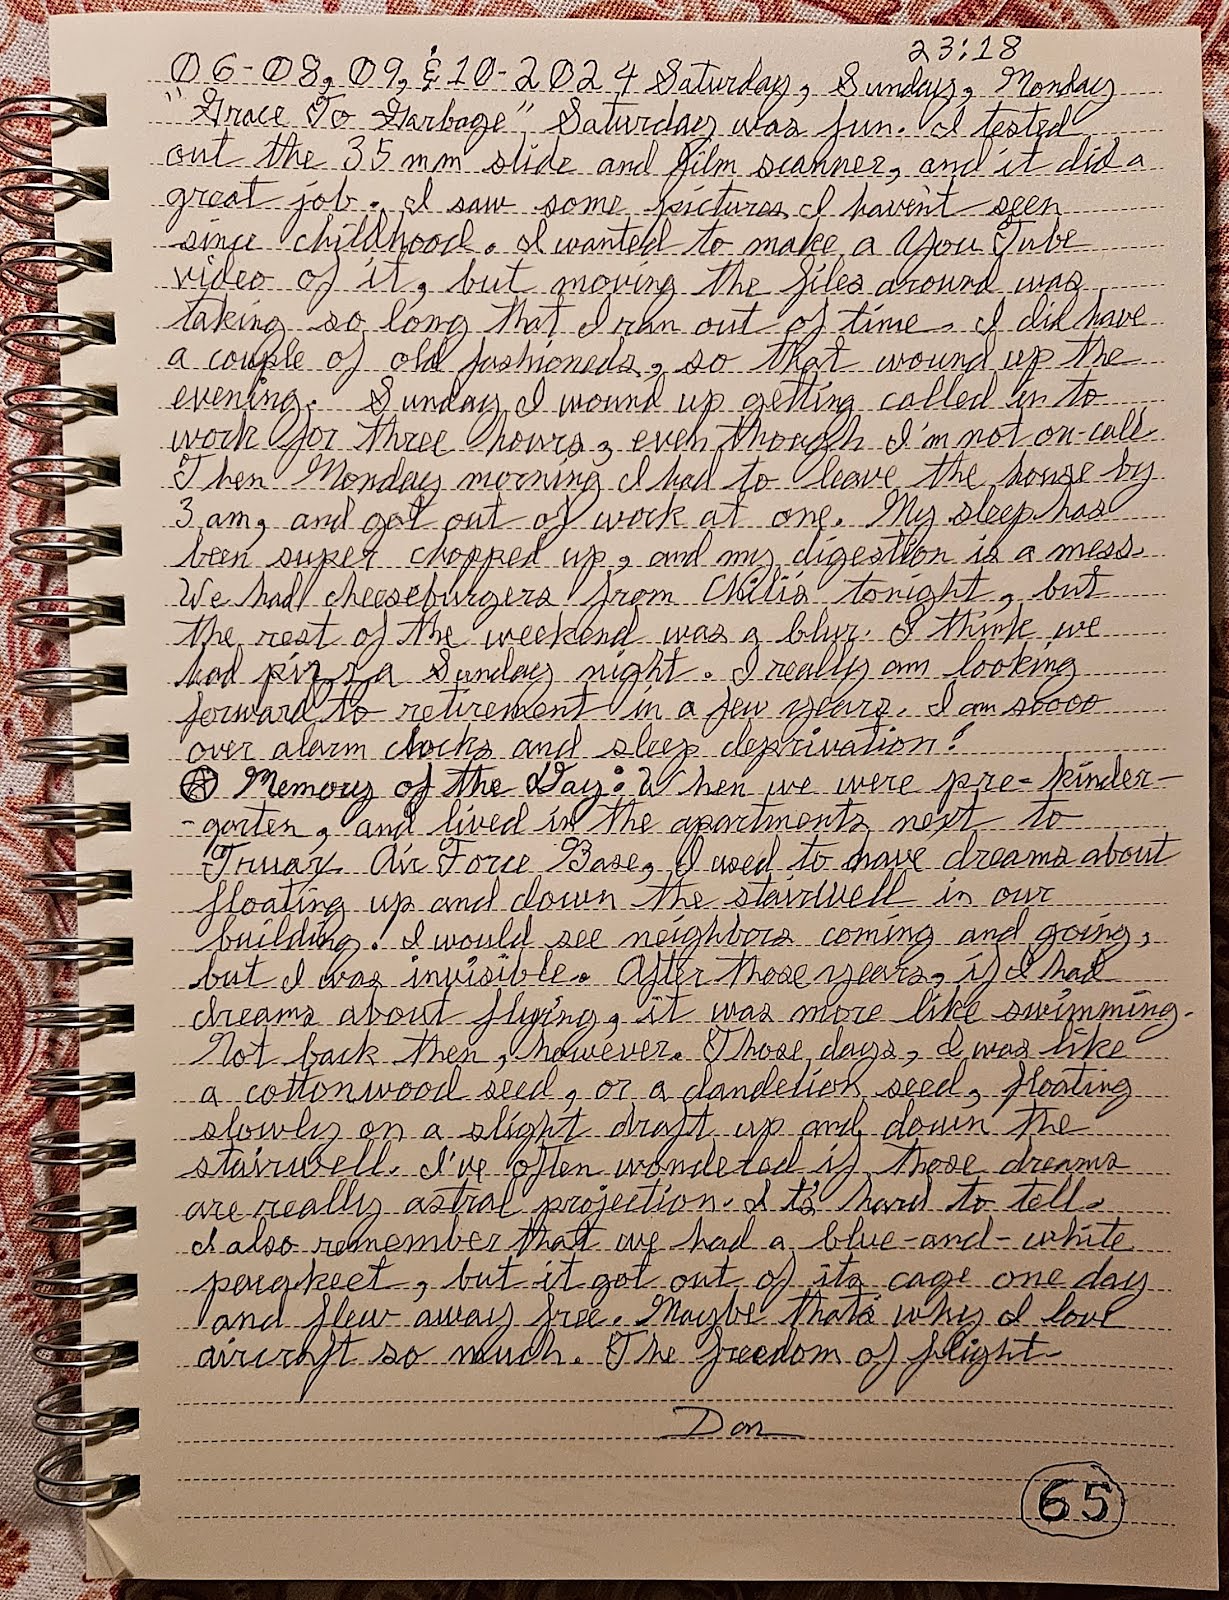 23:18
06-08, 09, & 10-2024 Saturday, Sunday, Monday
"Grace To Garbage" Saturday was fun. I tested
out the 35mm slide and film scanner, and it did a
great job. I saw some pictures I haven't seen
since childhood. I wanted to make a You Tube
video of it, but moving the files around was
taking so long that I ran out of time. I did have
a couple of old fashioneds, so that wound up the
evening. Sunday I wound up getting called in to
work for three hours, even though I'm not on-call.
Then Monday morning I had to leave the house by
3 am, and got out of work at one. My sleep has
been super chopped up, and my digestion is a mess.
We had cheeseburgers from Chilis tonight, but
the rest of the weekend was a blur. I think we
had pizza Sunday night. I really am looking
forward to retirement in a few years. I am soooo
over alarm clocks and sleep deprivation!
Memory of the Day: When we were pre-kinder-
-garten, and lived in the apartments next to
Truax Air Force Base, I used to have dreams about
floating up and down the stairwell in our
building. I would see neighbors coming and going,
but I was invisible. After those years, if I had
dreams about flying, it was more like swimming.
Not back then, however. Those days, I was like
a cottonwood seed, or a dandelion seed, floating
slowly on a slight draft up and down the
stairwell. I've often wondered if those dreams
are really astral projection. It's hard to tell.
I also remember that we had a blue-and-white
parakeet, but it got out of its cage one day
and flew away free. Maybe that's why I love
aircraft so much. The freedom of flight
Don
65